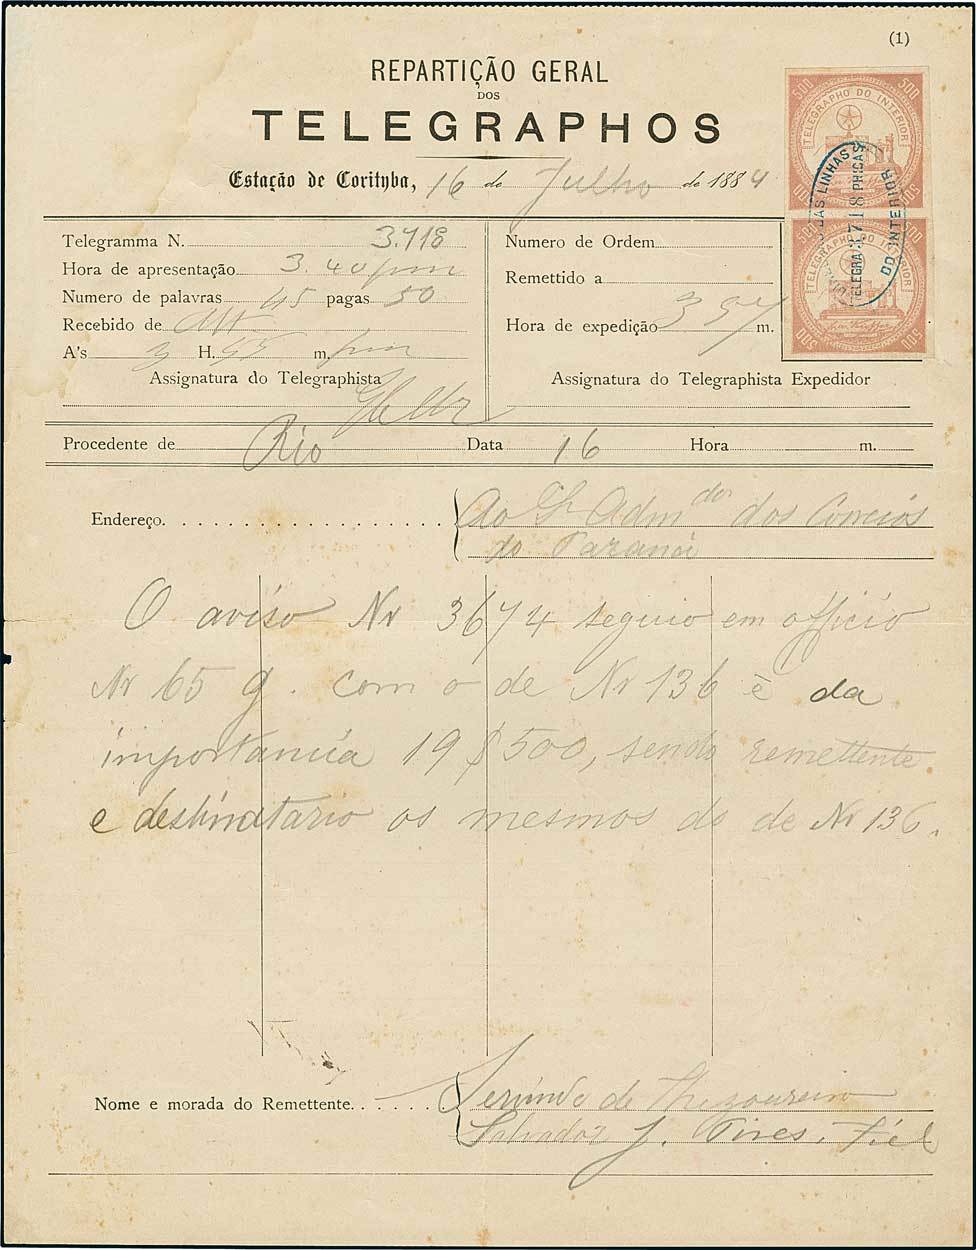 (1)
REPARTIÇÃO GERAL
DOS
TELEGRAPHOS
Estação de Corityba, 16 de Julho de 1884
500 500
TELEGRAPHO DO INTERIOR
500 500
500 500
TELEGRAPHO DO INTERIOR
500 500
DAS LINHAS
TELEGRA PHICAS
DO INTERIOR
Telegramma N. 3.718
Hora de apresentação 3.40 pm
Numero de palavras 45 pagas 50
Recebido de
A's 3 H. 55 m. pm
Assignatura do Telegraphista
Numero de Ordem
Remettido a
Hora de expedição 3 57 m.
Assignatura do Telegraphista Expedidor
Procedente de Rio Data 16 Hora m.
Endereço. Ao Sr Adm dor dos Correios
do Paraná
O aviso Nr 3674 seguio em officio
Nr 65 g. com o de Nr 136 è da
importancia 19$500, sendo remettente
e destinatario os mesmos do de Nr 136.
Nome e morada do Remettente. Servindo de Thezoureiro
Salvador J. Pires, Fiel